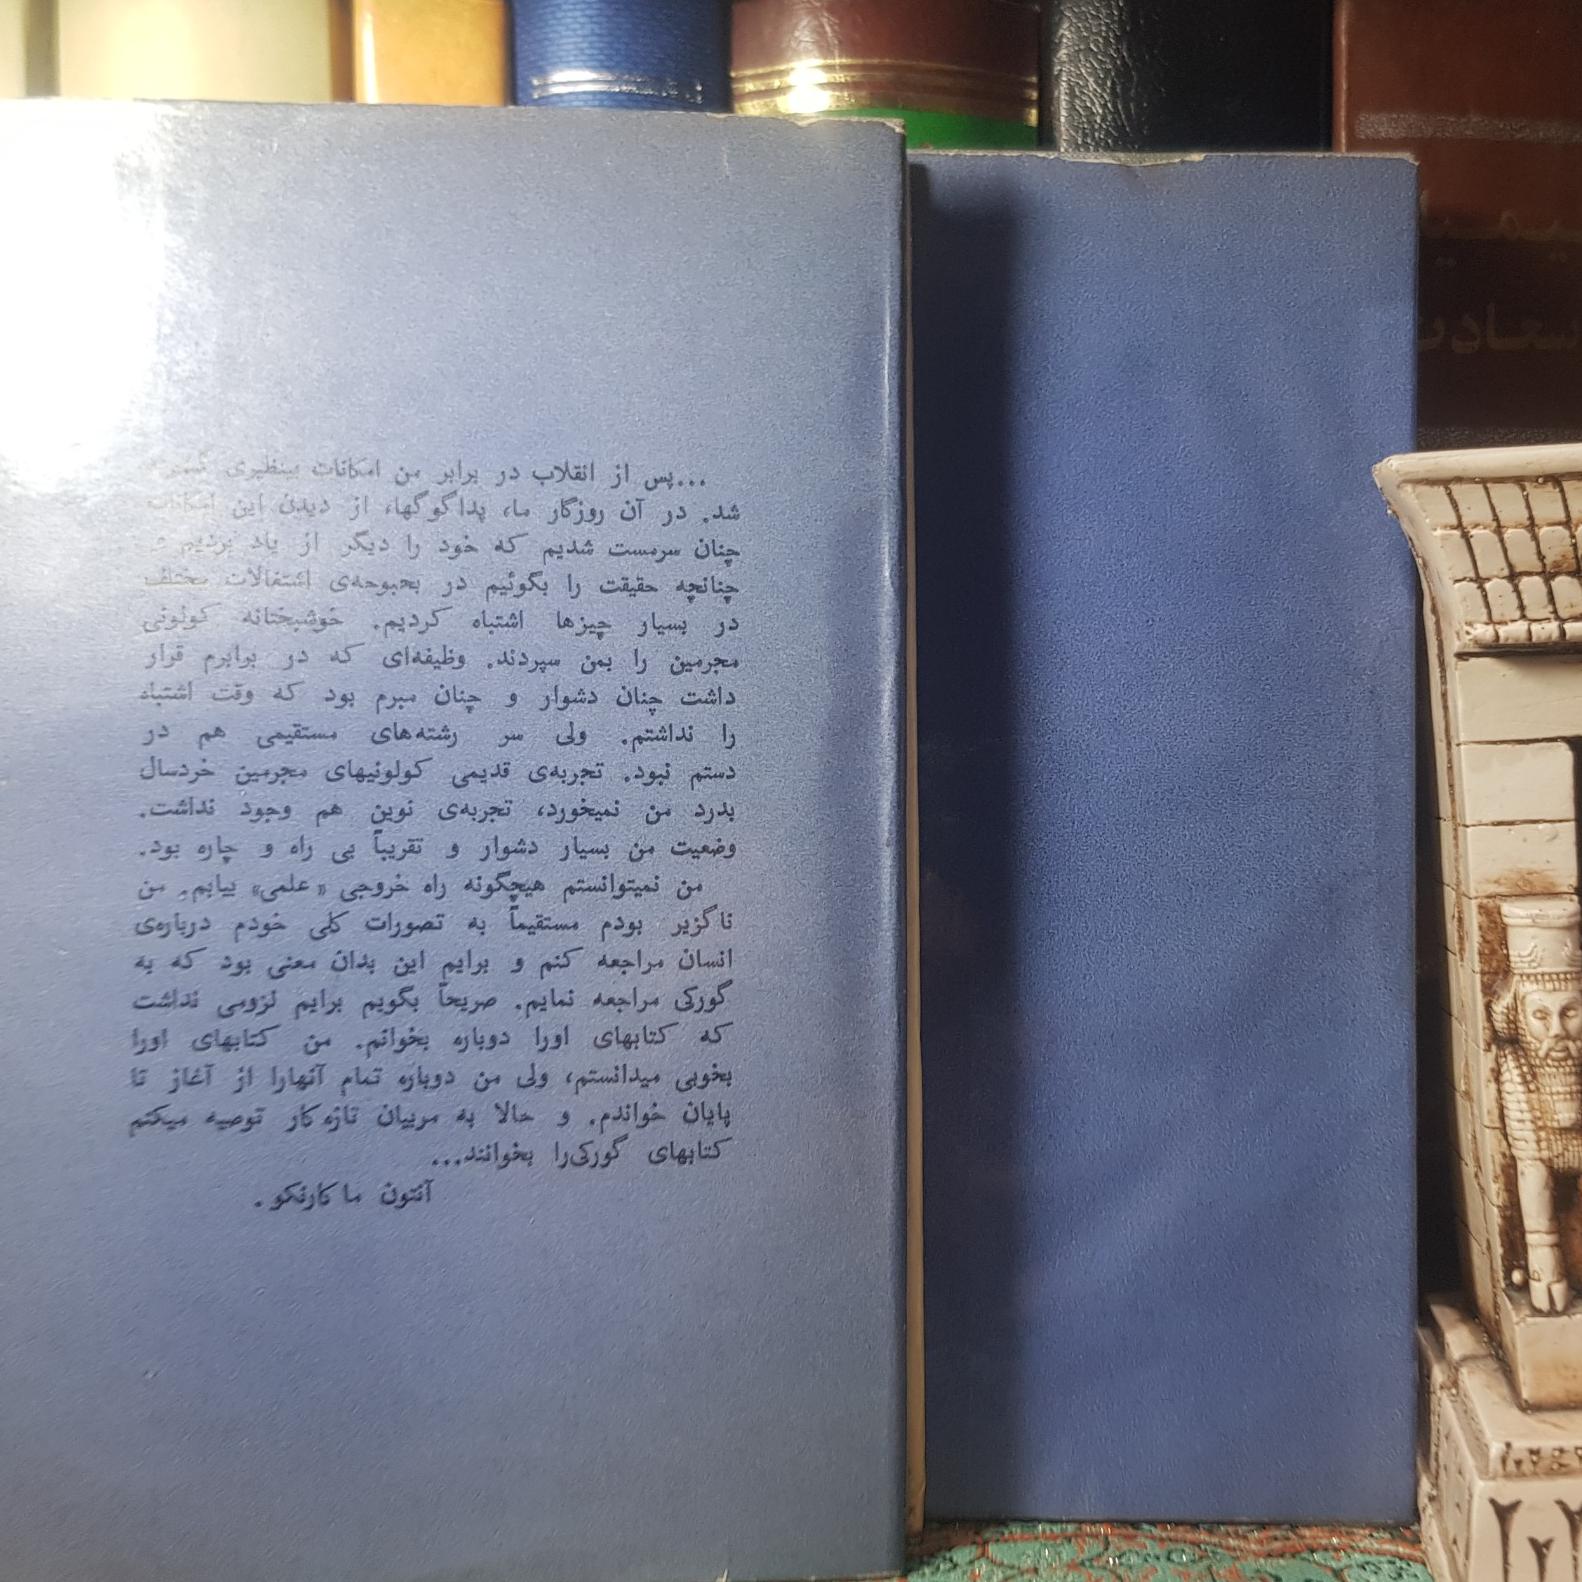 ...پس از انقلاب در برابر من امکانات بینظیری
شد. در آن روزگار ما، پداگوگها، از دیدن این امکانات
چنان سرمست شدیم که خود را دیگر از یاد بردیم و
چنانچه حقیقت را بگوئیم در بحبوحه‌ی اشتغالات مختلف
در بسیار چیزها اشتباه کردیم. خوشبختانه کولونی
مجرمین را بمن سپردند. وظیفه‌ای که در برابرم قرار
داشت چنان دشوار و چنان مبرم بود که وقت اشتباه
را نداشتم. ولی سر رشته‌های مستقیمی هم در
دستم نبود. تجربه‌ی قدیمی کولونیهای مجرمین خردسال
بدرد من نمیخورد، تجربه‌ی نوین هم وجود نداشت.
وضعیت من بسیار دشوار و تقریباً بی راه و چاره بود.
من نمیتوانستم هیچگونه راه خروجی «علمی» بیابم. من
ناگزیر بودم مستقیماً به تصورات کلی خودم درباره‌ی
انسان مراجعه کنم و برایم این بدان معنی بود که به
گورکی مراجعه نمایم. صریحاً بگویم برایم لزومی نداشت
که کتابهای اورا دوباره بخوانم. من کتابهای اورا
بخوبی میدانستم، ولی من دوباره تمام آنهارا از آغاز تا
پایان خواندم. و حالا به مربیان تازه‌کار توصیه میکنم
کتابهای گورکی‌را بخوانند...
آنتون ماکارنکو.
سعادت